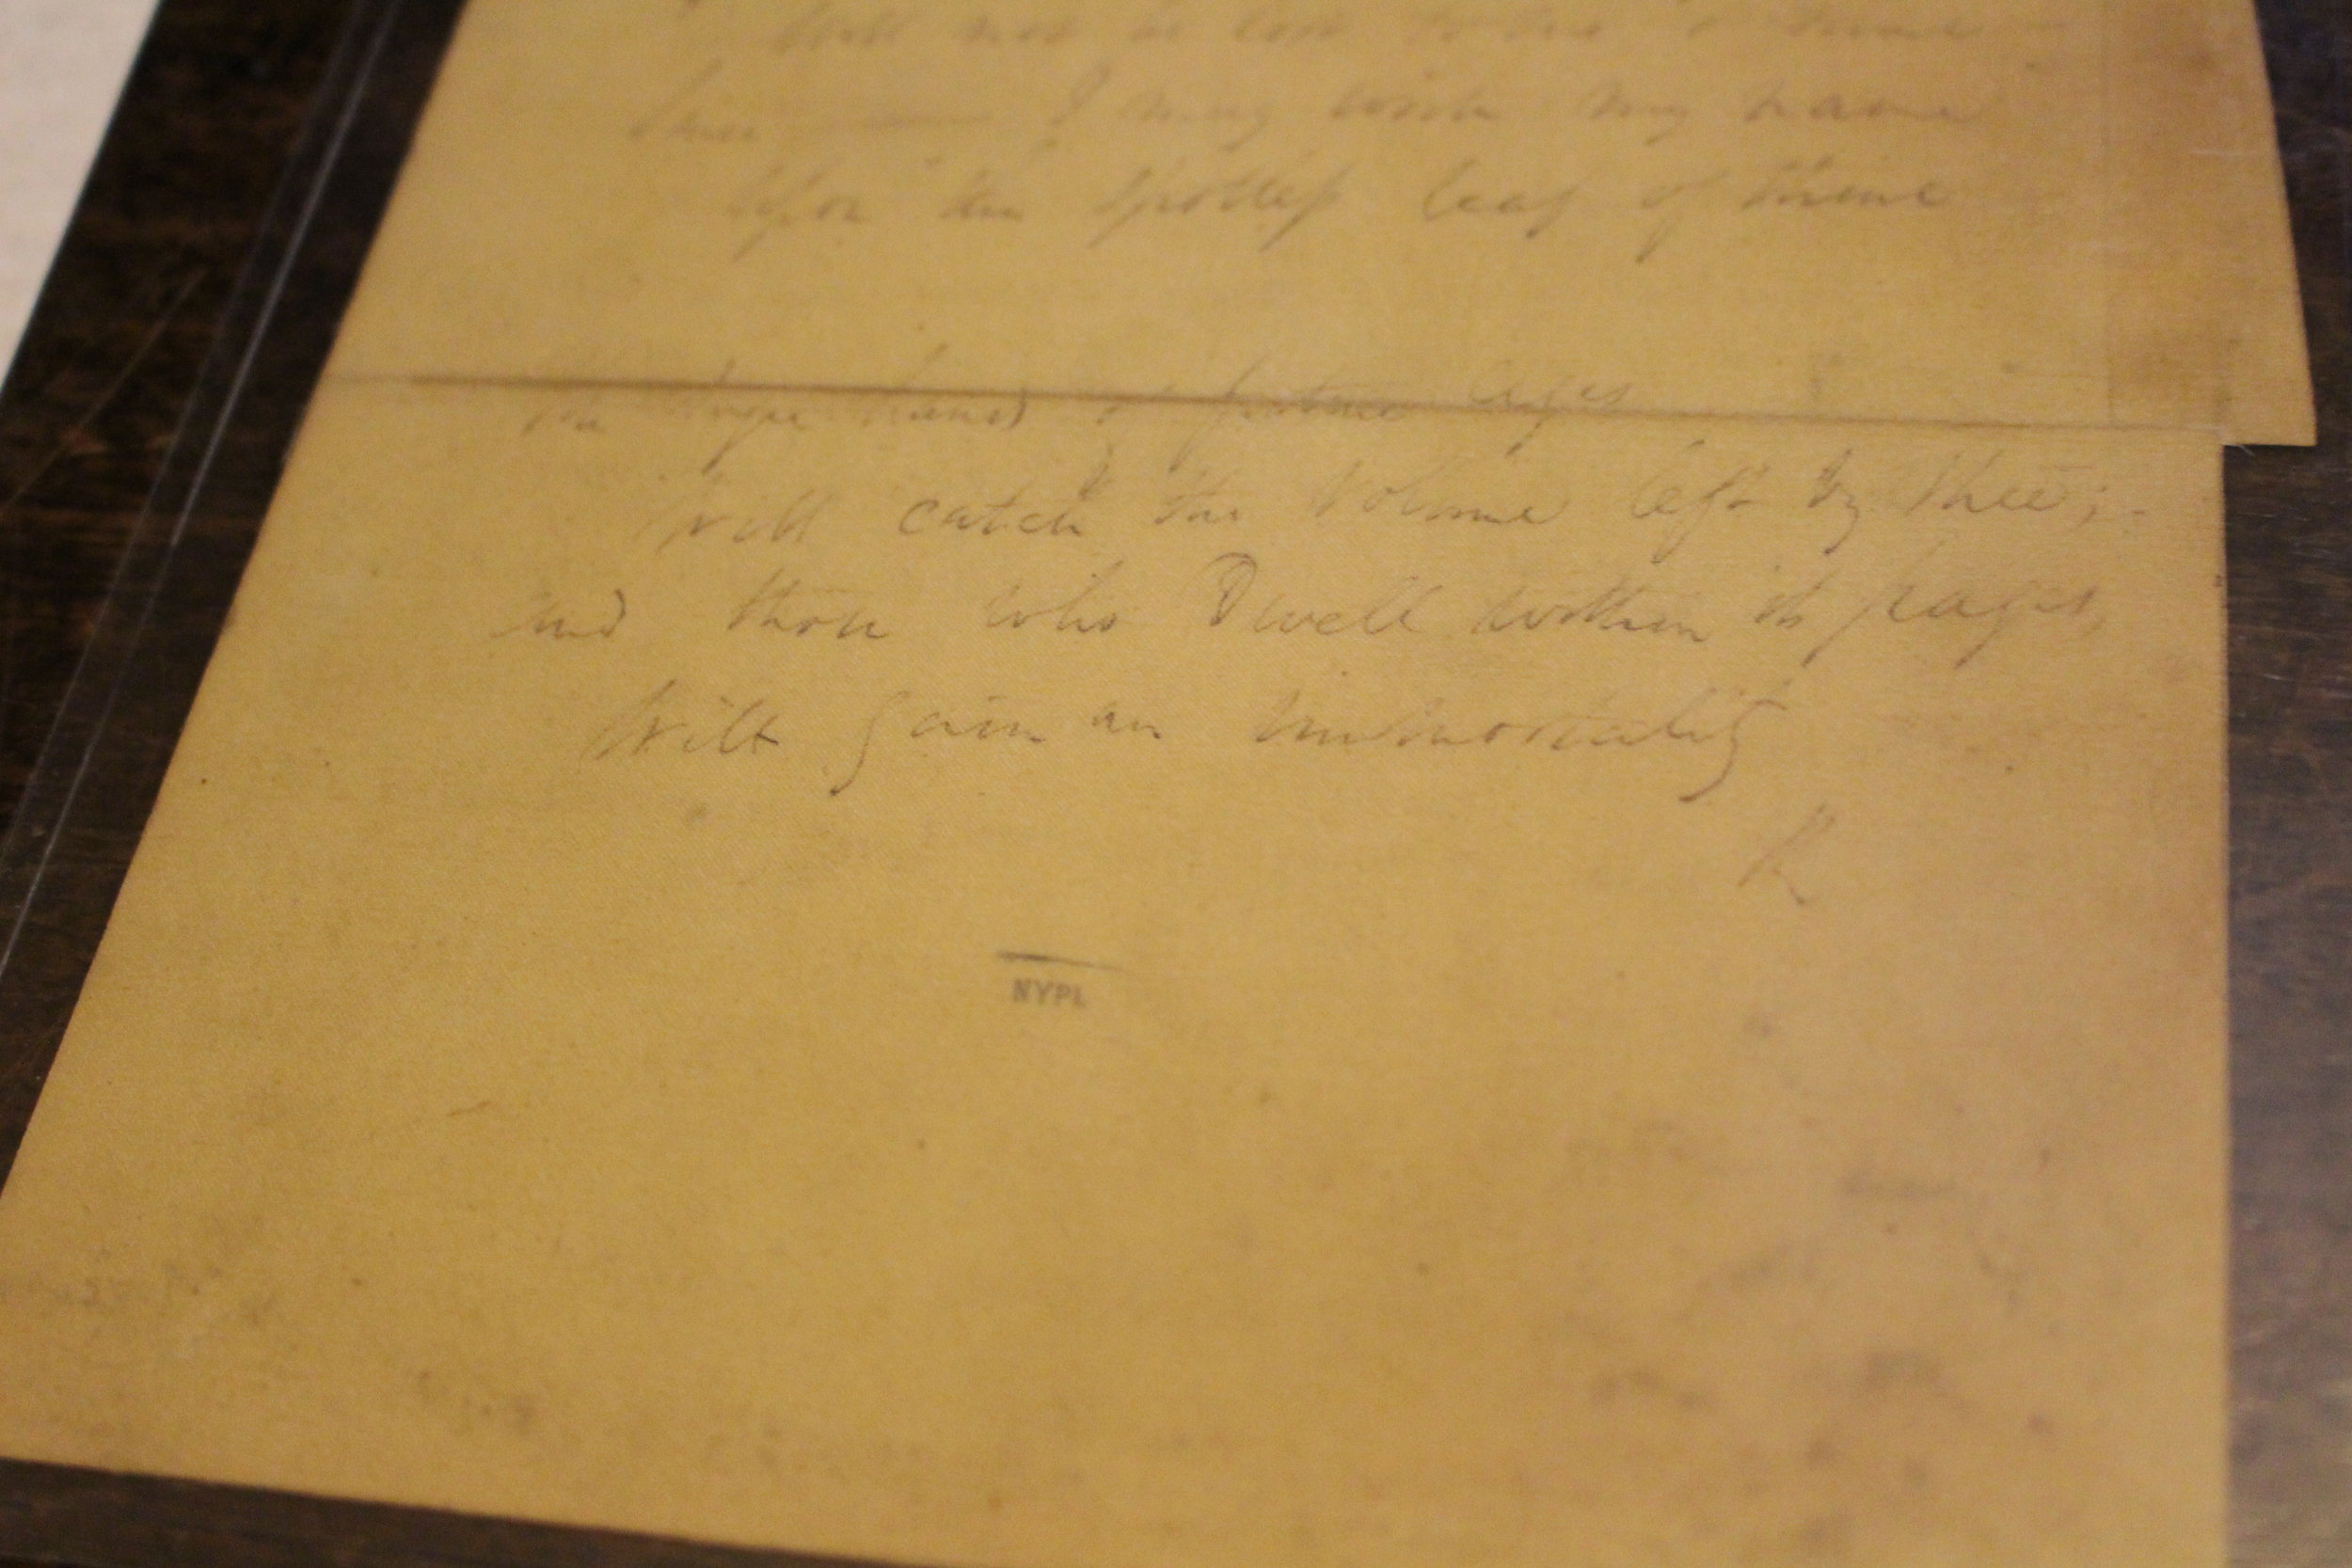 will not be lost to
Since I may write my name
Upon the spotless leaf of thine
The eager hand of future ages
Will catch the Volume left by thee;
and those who Dwell within its pages,
Will gain an immortality
R
NYPL